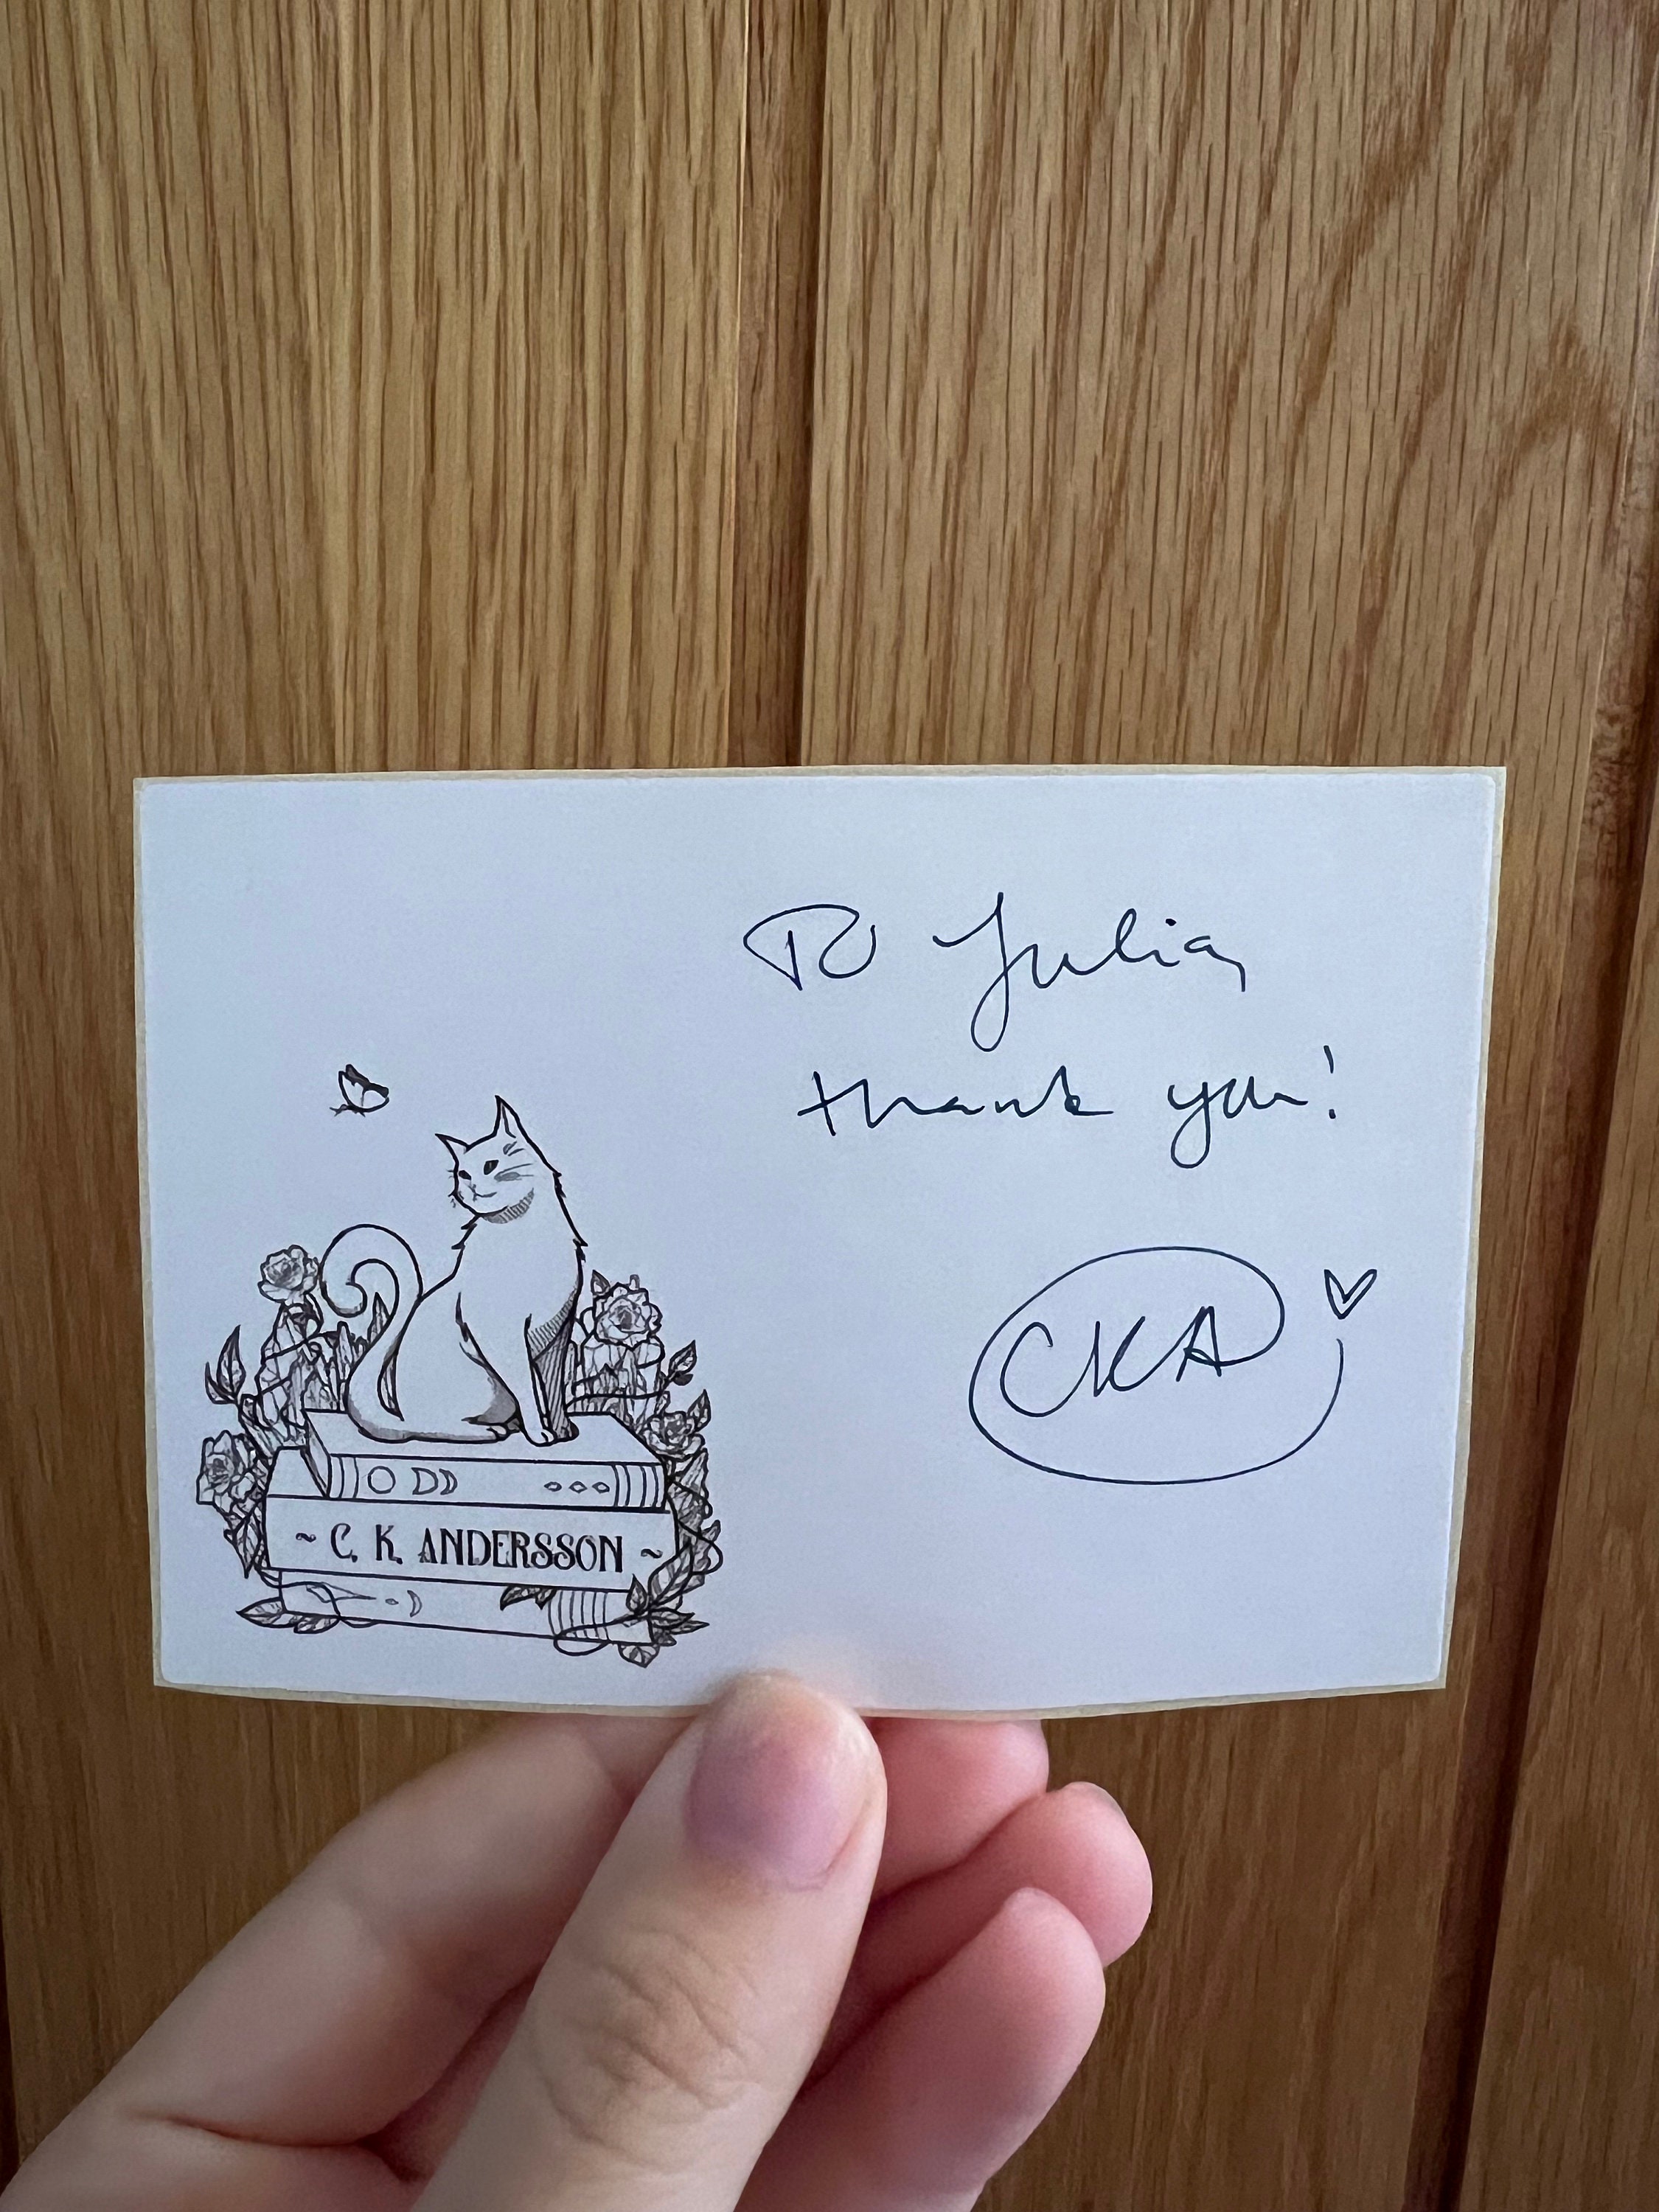 To Julia,
thank you!
CKA
~ C. K. ANDERSSON ~